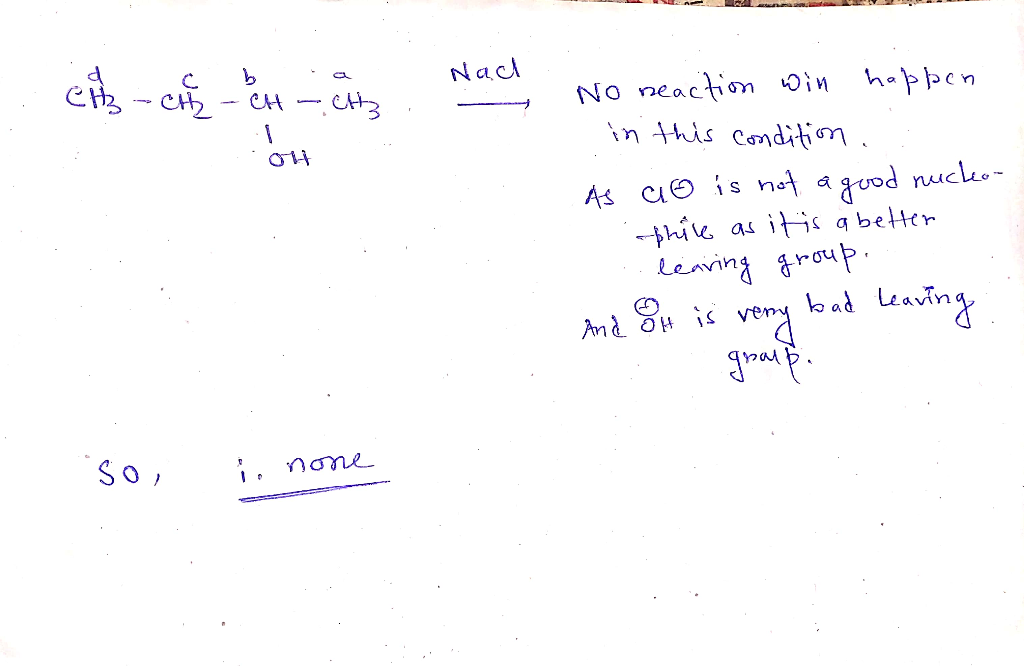 d c b a
CH3 - CH2 - CH - CH3 NaCl →
|
OH
NO reaction will happen
in this condition.
As Cl⊖ is not a good nucleo-
-phile as it is a better
leaving group.
And ⊖OH is very bad leaving
group.
So, i. none